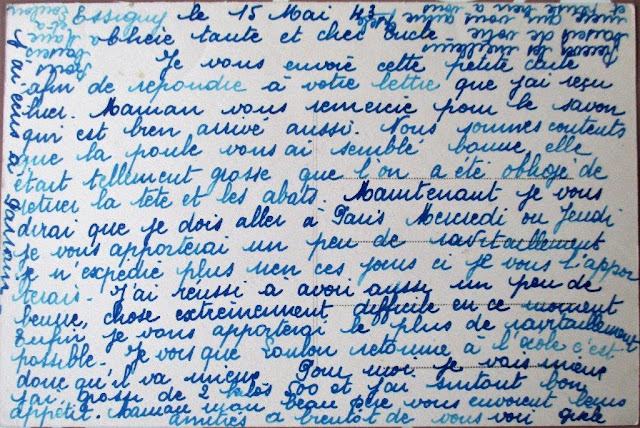 Essigny le 15 Mai 43
chère tante et cher oncle
Je vous envoie cette petite carte
afin de repondre à votre lettre que j'ai reçu
hier. Maman vous remercie pour le savon
qui est bien arrivé aussi. Nous sommes contents
que la poule vous ai semblé bonne, elle
était tellement grosse que l'on a été obligé de
retirer la tête et les abats. Maintenant je vous
dirai que je dois aller à Paris Mercredi ou Jeudi
je vous apporterai un peu de ravitaillement
je n'expédie plus rien ces jours ci je vous l'appor
terais. J'ai réussi à avoir aussi un peu de
beurre, chose extrêmement difficile en ce moment
Enfin je vous apporterai le plus de ravitaillement
possible. Je vois que Loulou retourne à l'école c'est
donc qu'il va mieux. Pour moi je vais mieux
j'ai grossi de 2 kilos 500 et j'ai surtout bon
appétit. Maman mon beau père vous envoient leurs
amitiés à bientôt de vous voir